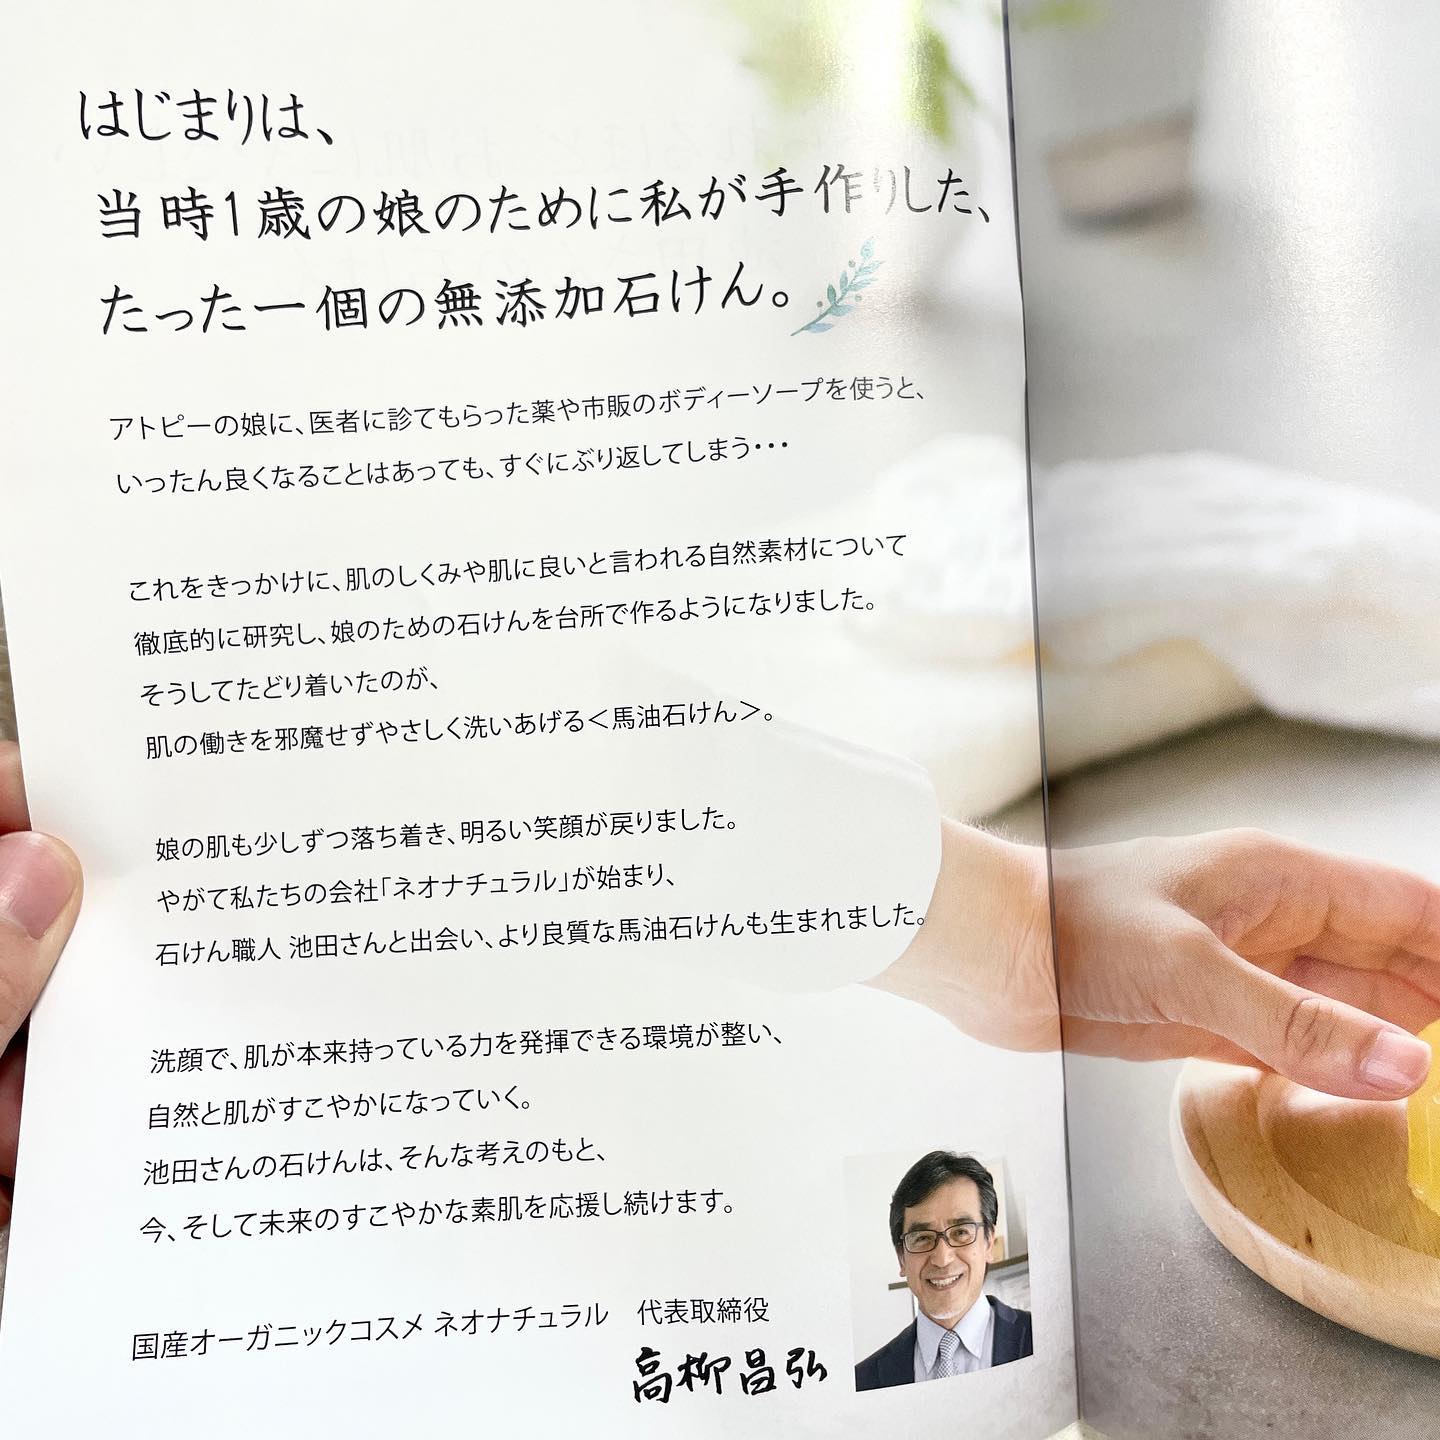 はじまりは、
当時1歳の娘のために私が手作りした、
たった一個の無添加石けん。
アトピーの娘に、医者に診てもらった薬や市販のボディーソープを使うと、
いったん良くなることはあっても、すぐにぶり返してしまう・・・
これをきっかけに、肌のしくみや肌に良いと言われる自然素材について
徹底的に研究し、娘のための石けんを台所で作るようになりました。
そうしてたどり着いたのが、
肌の働きを邪魔せずやさしく洗いあげる＜馬油石けん＞。
娘の肌も少しずつ落ち着き、明るい笑顔が戻りました。
やがて私たちの会社「ネオナチュラル」が始まり、
石けん職人 池田さんと出会い、より良質な馬油石けんも生まれました。
洗顔で、肌が本来持っている力を発揮できる環境が整い、
自然と肌がすこやかになっていく。
池田さんの石けんは、そんな考えのもと、
今、そして未来のすこやかな素肌を応援し続けます。
国産オーガニックコスメ ネオナチュラル　代表取締役
高柳昌弘